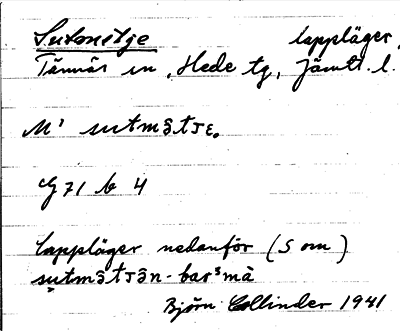 Sutmetje lappläger,
Tännäs sn, Hede tg, Jämtl. l.
M' sutmâtjɛ.
G 71 b 4
lappläger nedanför (S om)
sutmâtjân-barˢmà
Björn Collinder 1941